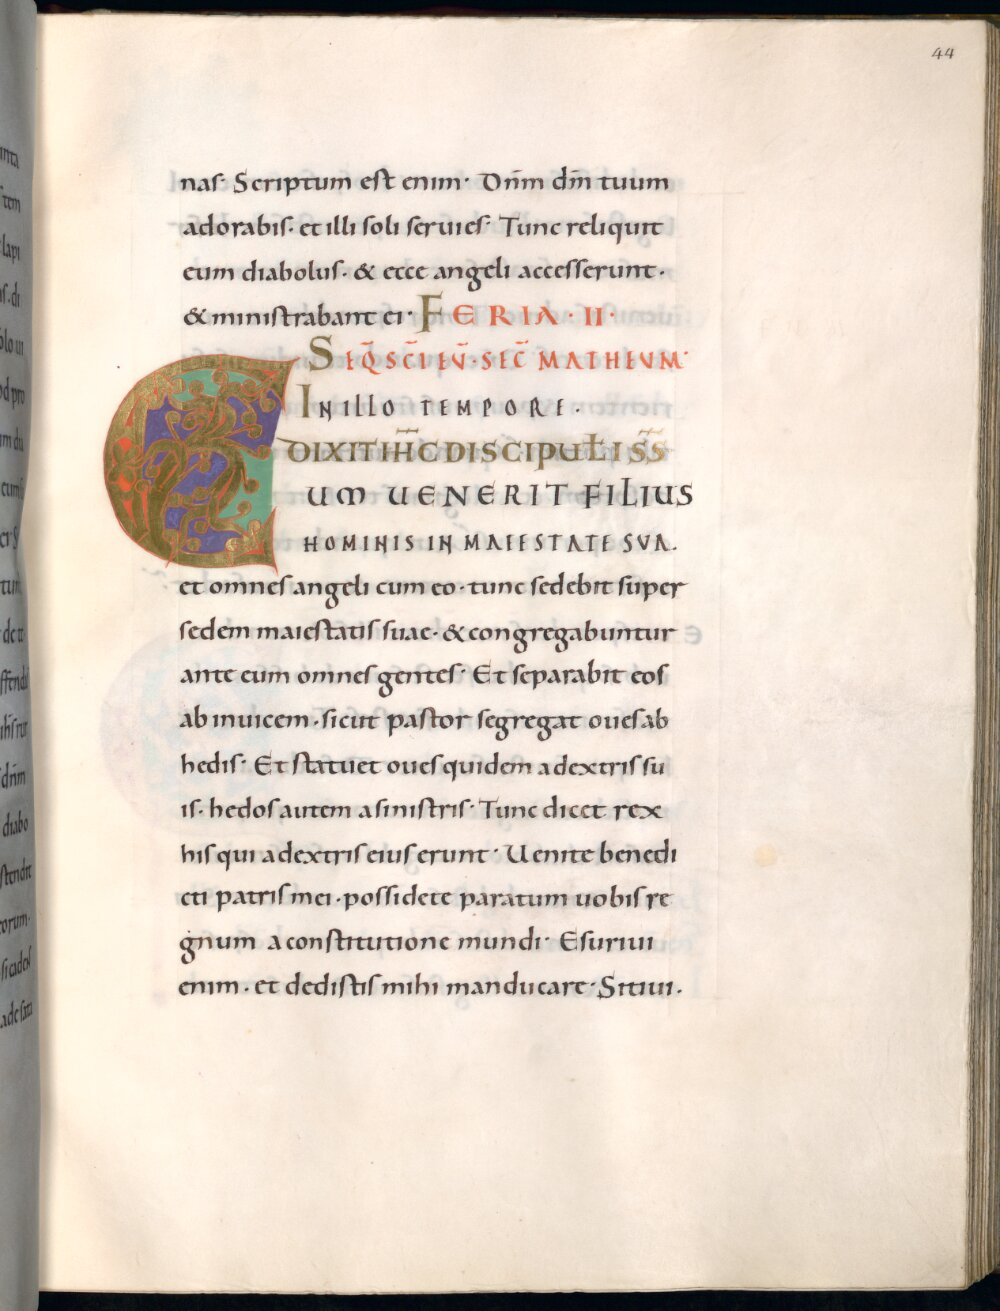 44
nas· Scriptum est enim· Dn̄m dm̄ tuum
adorabis· et illi soli seruies· Tunc reliquit
eum diabolus· & ecce angeli accesserunt·
& ministrabant ei· FERIA · II ·
SEQ̄ SC̄I EŪ · SEC̄ MATHEUM·
IN ILLO TEMPORE·
DIXIT IH̄C DISCIPULIS S̄S̄
CUM UENERIT FILIUS
HOMINIS IN MAIESTATE SUA.
et omnes angeli cum eo · tunc sedebit super
sedem maiestatis suae· & congregabuntur
ante eum omnes gentes· Et separabit eos
ab inuicem · sicut pastor segregat oues ab
hedis· Et statuet oues quidem a dextris su
is· hedos autem a sinistris· Tunc dicet rex
his qui a dextris eius erunt· Uenite benedi
cti patris mei · possidete paratum uobis re
gnum a constitutione mundi· Esuriui
enim · et dedistis mihi manducare· Sitiui ·